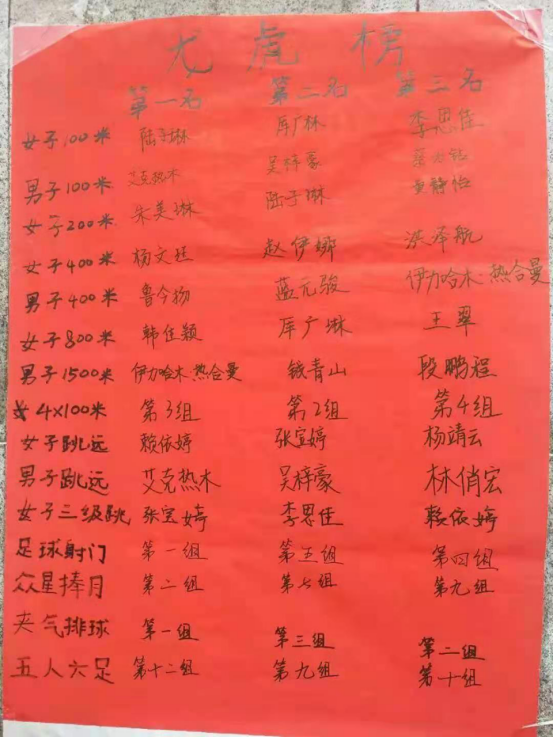 龙虎榜
第一名 第二名 第三名
女子100米 陆子琳 厍广琳 李思佳
男子100米 艾克热木 吴梓豪
女子200米 朱美琳 陆子琳 黄静怡
女子400米 杨文 赵伊娜 洪泽航
男子400米 鲁今扬 蓝元骏 伊力哈木·热合曼
女子800米 韩佳颖 厍广琳 王翠
男子1500米 伊力哈木·热合曼 钱青山 段鹏程
女4X100米 第3组 第2组 第4组
女子跳远 赖依婷 张宝婷 杨靖云
男子跳远 艾克热木 吴梓豪 林俏宏
女子三级跳 张宝婷 李思佳 赖依婷
足球射门 第一组 第五组 第四组
众星捧月 第二组 第七组 第九组
夹气排球 第一组 第三组 第二组
五人六足 第十二组 第九组 第十组